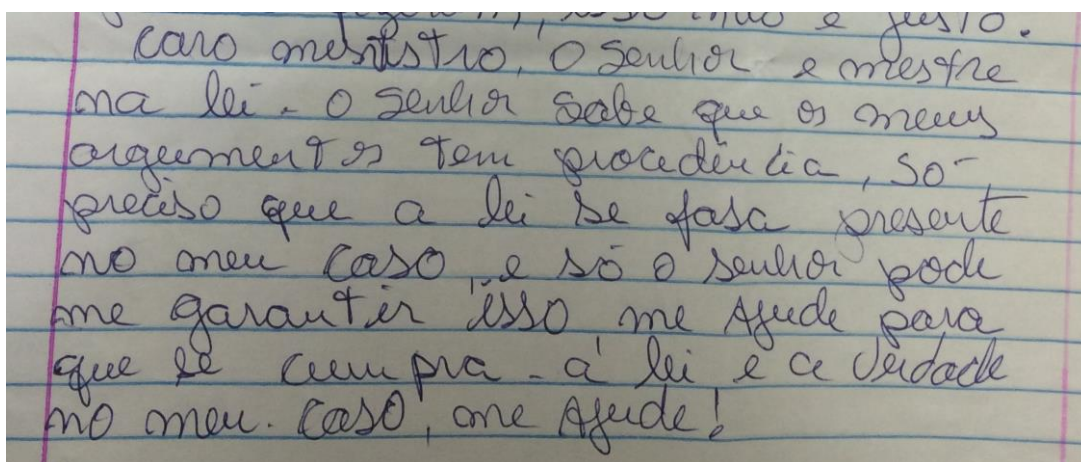 isso não e justo.
caro menistro, O Senhor e mestre
na lei - O senhor sabe que os meus
argumentos tem procedência, só
preciso que a lei se fasa presente
no meu caso, e só o senhor pode
me garantir isso me Ajude para
que se cumpra - a lei e a verdade
no meu. caso, me Ajude!